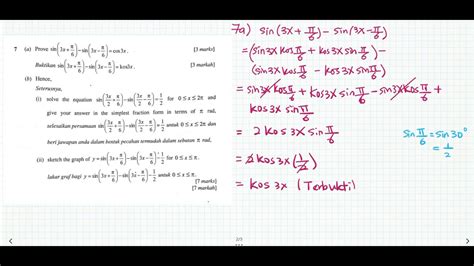 7 (a) Prove sin(3x + π/6) − sin(3x − π/6) = cos3x. [3 marks]
Buktikan sin(3x + π/6) − sin(3x − π/6) = kos3x. [3 markah]
(b) Hence,
Seterusnya,
(i) solve the equation sin(3x/2 + π/6) − sin(3x/2 − π/6) = 1/2 for 0 ≤ x ≤ 2π and
give your answer in the simplest fraction form in terms of π rad,
selesaikan persamaan sin(3x/2 + π/6) − sin(3x/2 − π/6) = 1/2 untuk 0 ≤ x ≤ 2π dan
beri jawapan anda dalam bentuk pecahan termudah dalam sebutan π rad,
(ii) sketch the graph of y = sin(3x + π/6) − sin(3x − π/6) − 1/2 for 0 ≤ x ≤ π.
lakar graf bagi y = sin(3x + π/6) − sin(3x − π/6) − 1/2 untuk 0 ≤ x ≤ π.
[7 marks]
[7 markah]
7a) sin(3x + π/6) − sin(3x − π/6)
= (sin3x kos π/6 + kos3x sin π/6) −
(sin3x kos π/6 − kos3x sin π/6)
= sin3x kos π/6 + kos3x sin π/6 − sin3x kos π/6 +
kos3x sin π/6
= 2 kos 3x sin π/6
sin π/6 = sin30°
= 1/2
= 2 kos 3x (1/2)
= kos 3x (Terbukti)
2/3